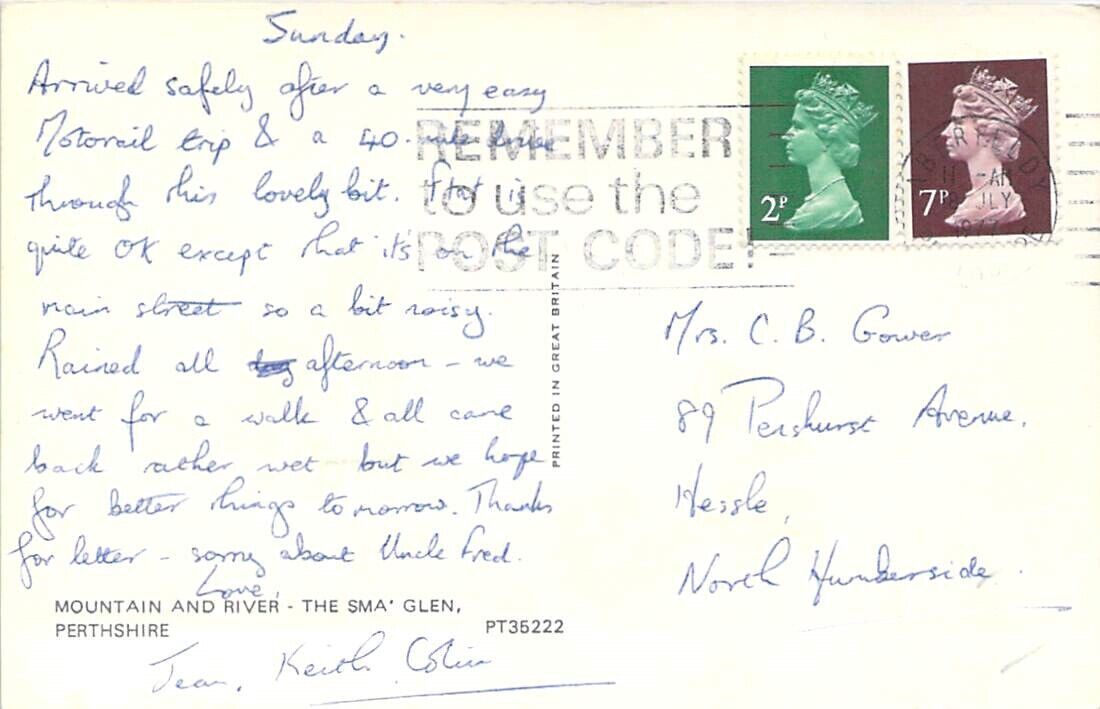 Sunday.
Arrived safely after a very easy
Motorail trip & a 40 mile drive
through this lovely bit. Flat is
quite OK except that it's on the
main street so a bit noisy.
Rained all afternoon - we
went for a walk & all came
back rather wet but we hope
for better things tomorrow. Thanks
for letter - sorry about Uncle Fred.
Love,
Jean, Keith, Colin
MOUNTAIN AND RIVER - THE SMA' GLEN,
PERTHSHIRE
PT35222
PRINTED IN GREAT BRITAIN
REMEMBER
to use the
POST CODE!
2P
7P
JLY
Mrs. C. B. Gower
89 Penshurst Avenue,
Hessle,
North Humberside.